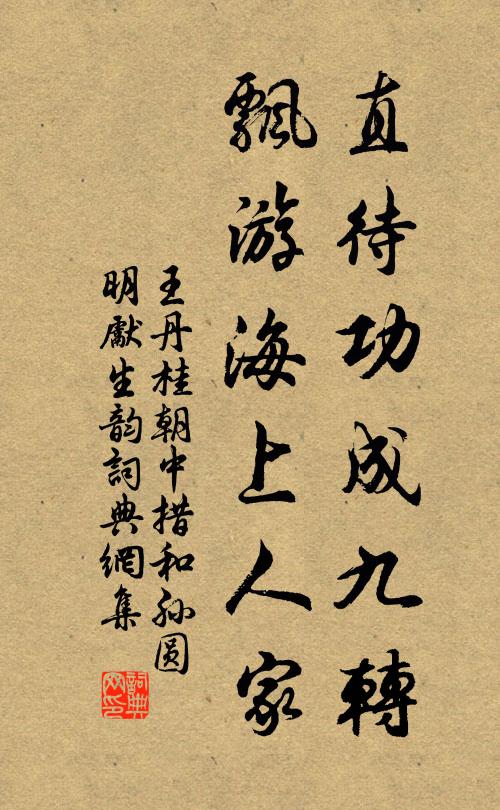 直待功成九轉
飄游海上人家
王丹桂朝中措和孙圆
明獻生韵詞典網集
詞典
网印